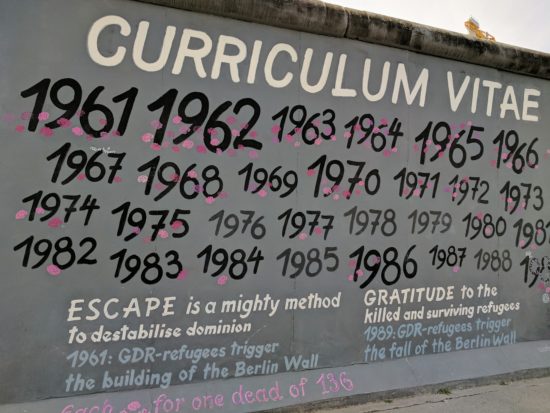 CURRICULUM VITAE
1961 1962 1963 1964 1965 1966
1967 1968 1969 1970 1971 1972 1973
1974 1975 1976 1977 1978 1979 1980
1982 1983 1984 1985 1986 1987 1988
ESCAPE is a mighty method
to destabilise dominion
1961: GDR-refugees trigger
the building of the Berlin Wall
GRATITUDE to the
killed and surviving refugees
1989: GDR-refugees trigger
the fall of the Berlin Wall
Each for one dead of 136